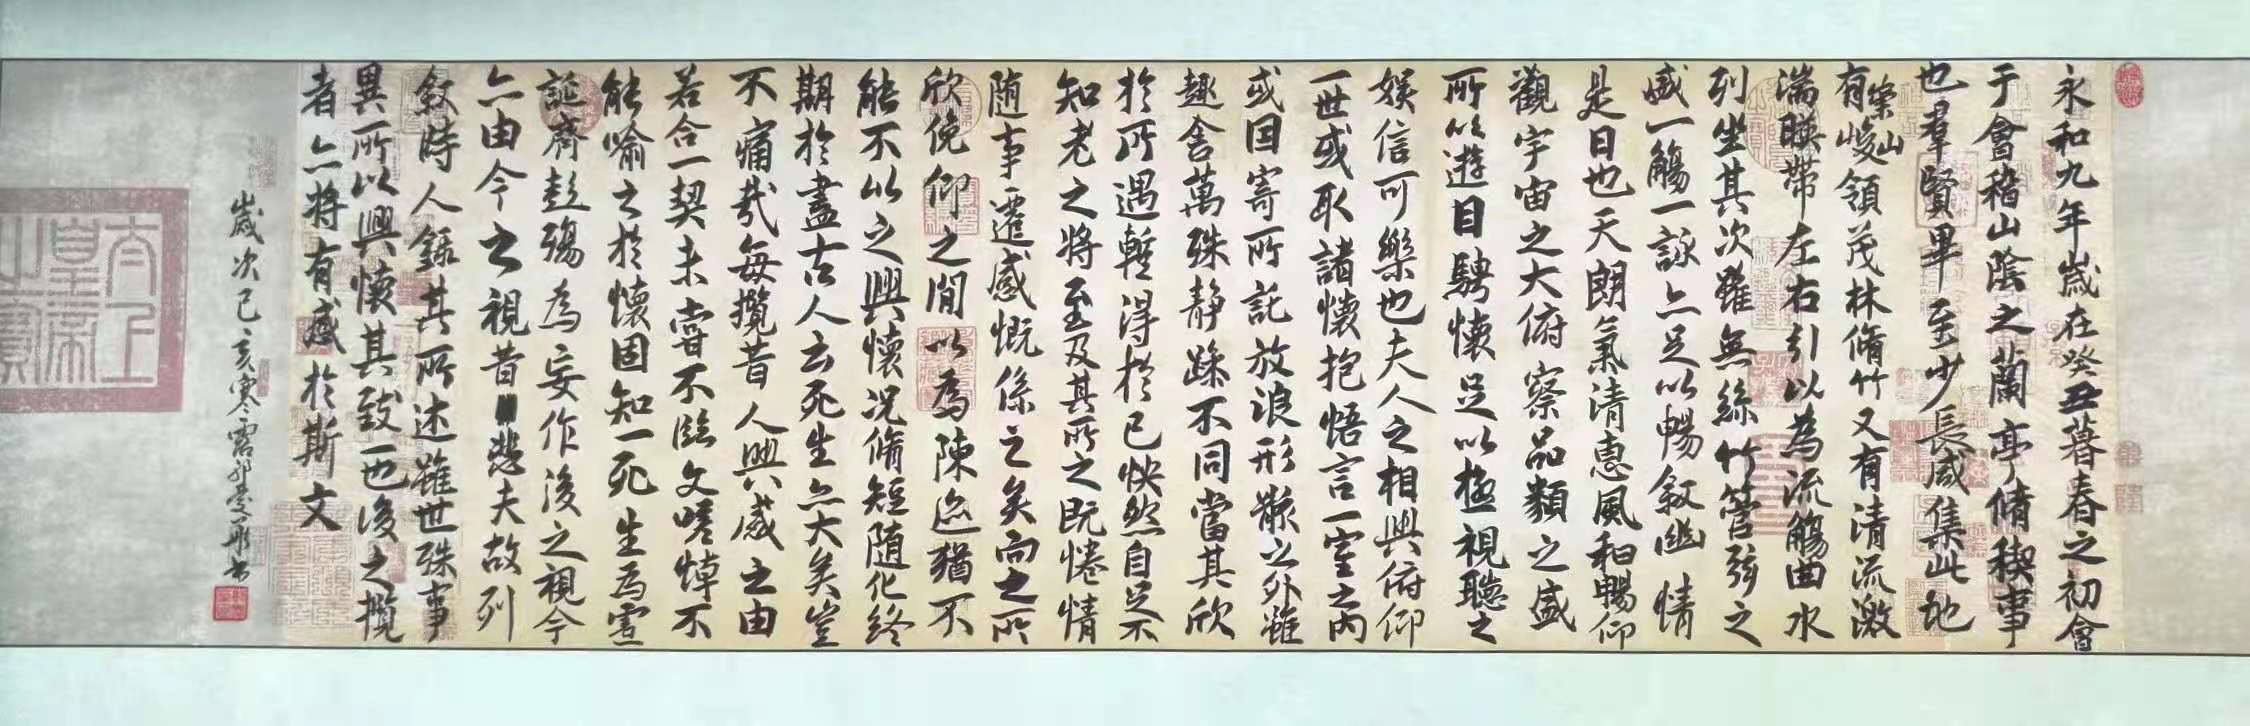 永和九年歲在癸丑暮春之初會
于會稽山陰之蘭亭脩稧事
也羣賢畢至少長咸集此地
有崇山峻領茂林脩竹又有清流激
湍暎帶左右引以為流觴曲水
列坐其次雖無絲竹管弦之
盛一觴一詠亦足以暢敘幽情
是日也天朗氣清惠風和暢仰
觀宇宙之大俯察品類之盛
所以遊目騁懷足以極視聽之
娛信可樂也夫人之相與俯仰
一世或取諸懷抱悟言一室之內
或因寄所託放浪形骸之外雖
趣舍萬殊靜躁不同當其欣
於所遇蹔得於己怏然自足不
知老之將至及其所之既惓情
隨事遷感慨係之矣向之所
欣俛仰之閒以為陳迹猶不
能不以之興懷況脩短隨化終
期於盡古人云死生亦大矣豈
不痛哉每攬昔人興感之由
若合一契未嘗不臨文嗟悼不
能喻之於懷固知一死生為虛
誕齊彭殤為妄作後之視今
亦由今之視昔悲夫故列
敘時人錄其所述雖世殊事
異所以興懷其致一也後之攬
者亦將有感於斯文
歲次己亥寒露
太上皇帝